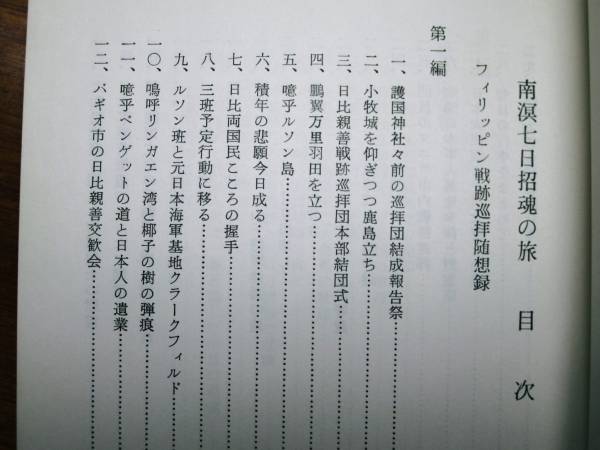 南溟七日招魂の旅 目次
フィリッピン戦跡巡拝随想録
第一編
一、護国神社々前の巡拝団結成報告祭………
二、小牧城を仰ぎつつ鹿島立ち………
三、日比親善戦跡巡拝団本部結団式………
四、鵬翼万里羽田を立つ………
五、噫乎ルソン島………
六、積年の悲願今日成る………
七、日比両国民こころの握手………
八、三班予定行動に移る………
九、ルソン班と元日本海軍基地クラークフィルド
一〇、嗚呼リンガエン湾と椰子の樹の弾痕………
一一、噫乎ベンゲットの道と日本人の遺業………
一二、バギオ市の日比親善交歓会………